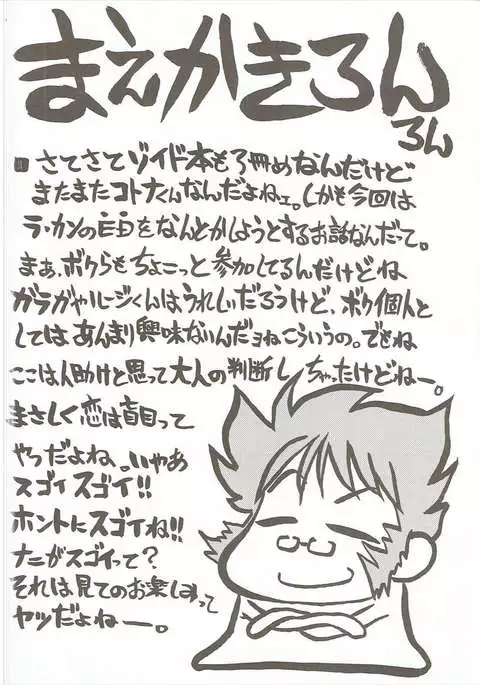 まえがきろん
ろん
さてさてゾイド本も3冊めなんだけど
またまたコトナくんなんだよねェ。しかも今回は
ラ・カンの目をなんとかしようとするお話なんだって。
まぁ、ボクらもちょこっと参加してるんだけどね
ガラガやルージくんはうれしいだろうけど、ボク個人と
してはあんまり興味ないんだョねこういうの。でもね
ここは人助けと思って大人の判断しちゃったけどねー。
まさしく恋は盲目って
やつだよね、いやあ
スゴイスゴイ!!
ホントにスゴイね!!
ナニがスゴイって?
それは見てのお楽しみって
ヤツだよねー。